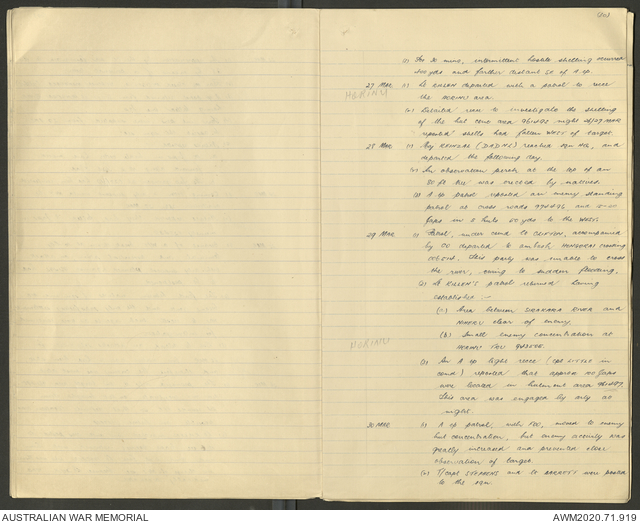 (20)
(2) For 30 mins, intermittent hostile shelling occurred
400 yds and further distant SE of A cp.
27 Mar (1) Lt departed with a patrol to recce
HORINU
the area.
(2) Detailed recce to investigate the shelling
of the hut area night 26/27 MAR
reported shells had fallen WEST of target.
28 Mar (1) Maj (DADMS) reached sqn HQ, and
departed the following day.
(2) An observation perch at the top of an
80 ft tree was erected by natives.
(3) A cp patrol reported an enemy standing
patrol at cross roads and
Japs in 3 huts 50 yds to the WEST.
29 Mar (1) Patrol, under comd Lt CLIFTON, accompanied
by OC departed to ambush crossing
. This party was unable to cross
the river, owing to sudden flooding.
(2) Lt patrol returned having
established :-
(a) Area between RIVER and
clear of enemy.
(b) Small enemy concentration at
HORINU
(3) An A cp light recce (Cpl LITTLE in
comd) reported that approx Japs
were located in hutment area
This area was engaged by arty at
night.
30 MAR (1) A cp patrol, with FOO, moved to enemy
hut concentration, but enemy activity was
greatly increased and prevented close
observation of target.
(2) T/Capt STEPHENS and Lt BARRETT were posted
to the sqn.
AUSTRALIAN WAR MEMORIAL
AWM2020.71.919